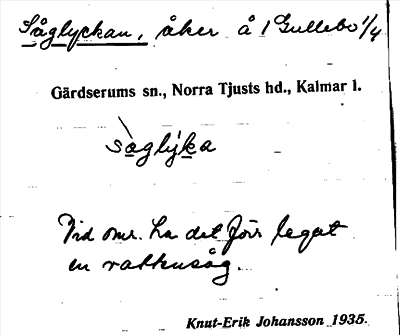 Såglyckan, åker å 1 Gullebo 1/4
Gärdserums sn., Norra Tjusts hd., Kalmar l.
såglýka
Vid omr. ha det förr legat
en vattensåg.
Knut-Erik Johansson 1935.